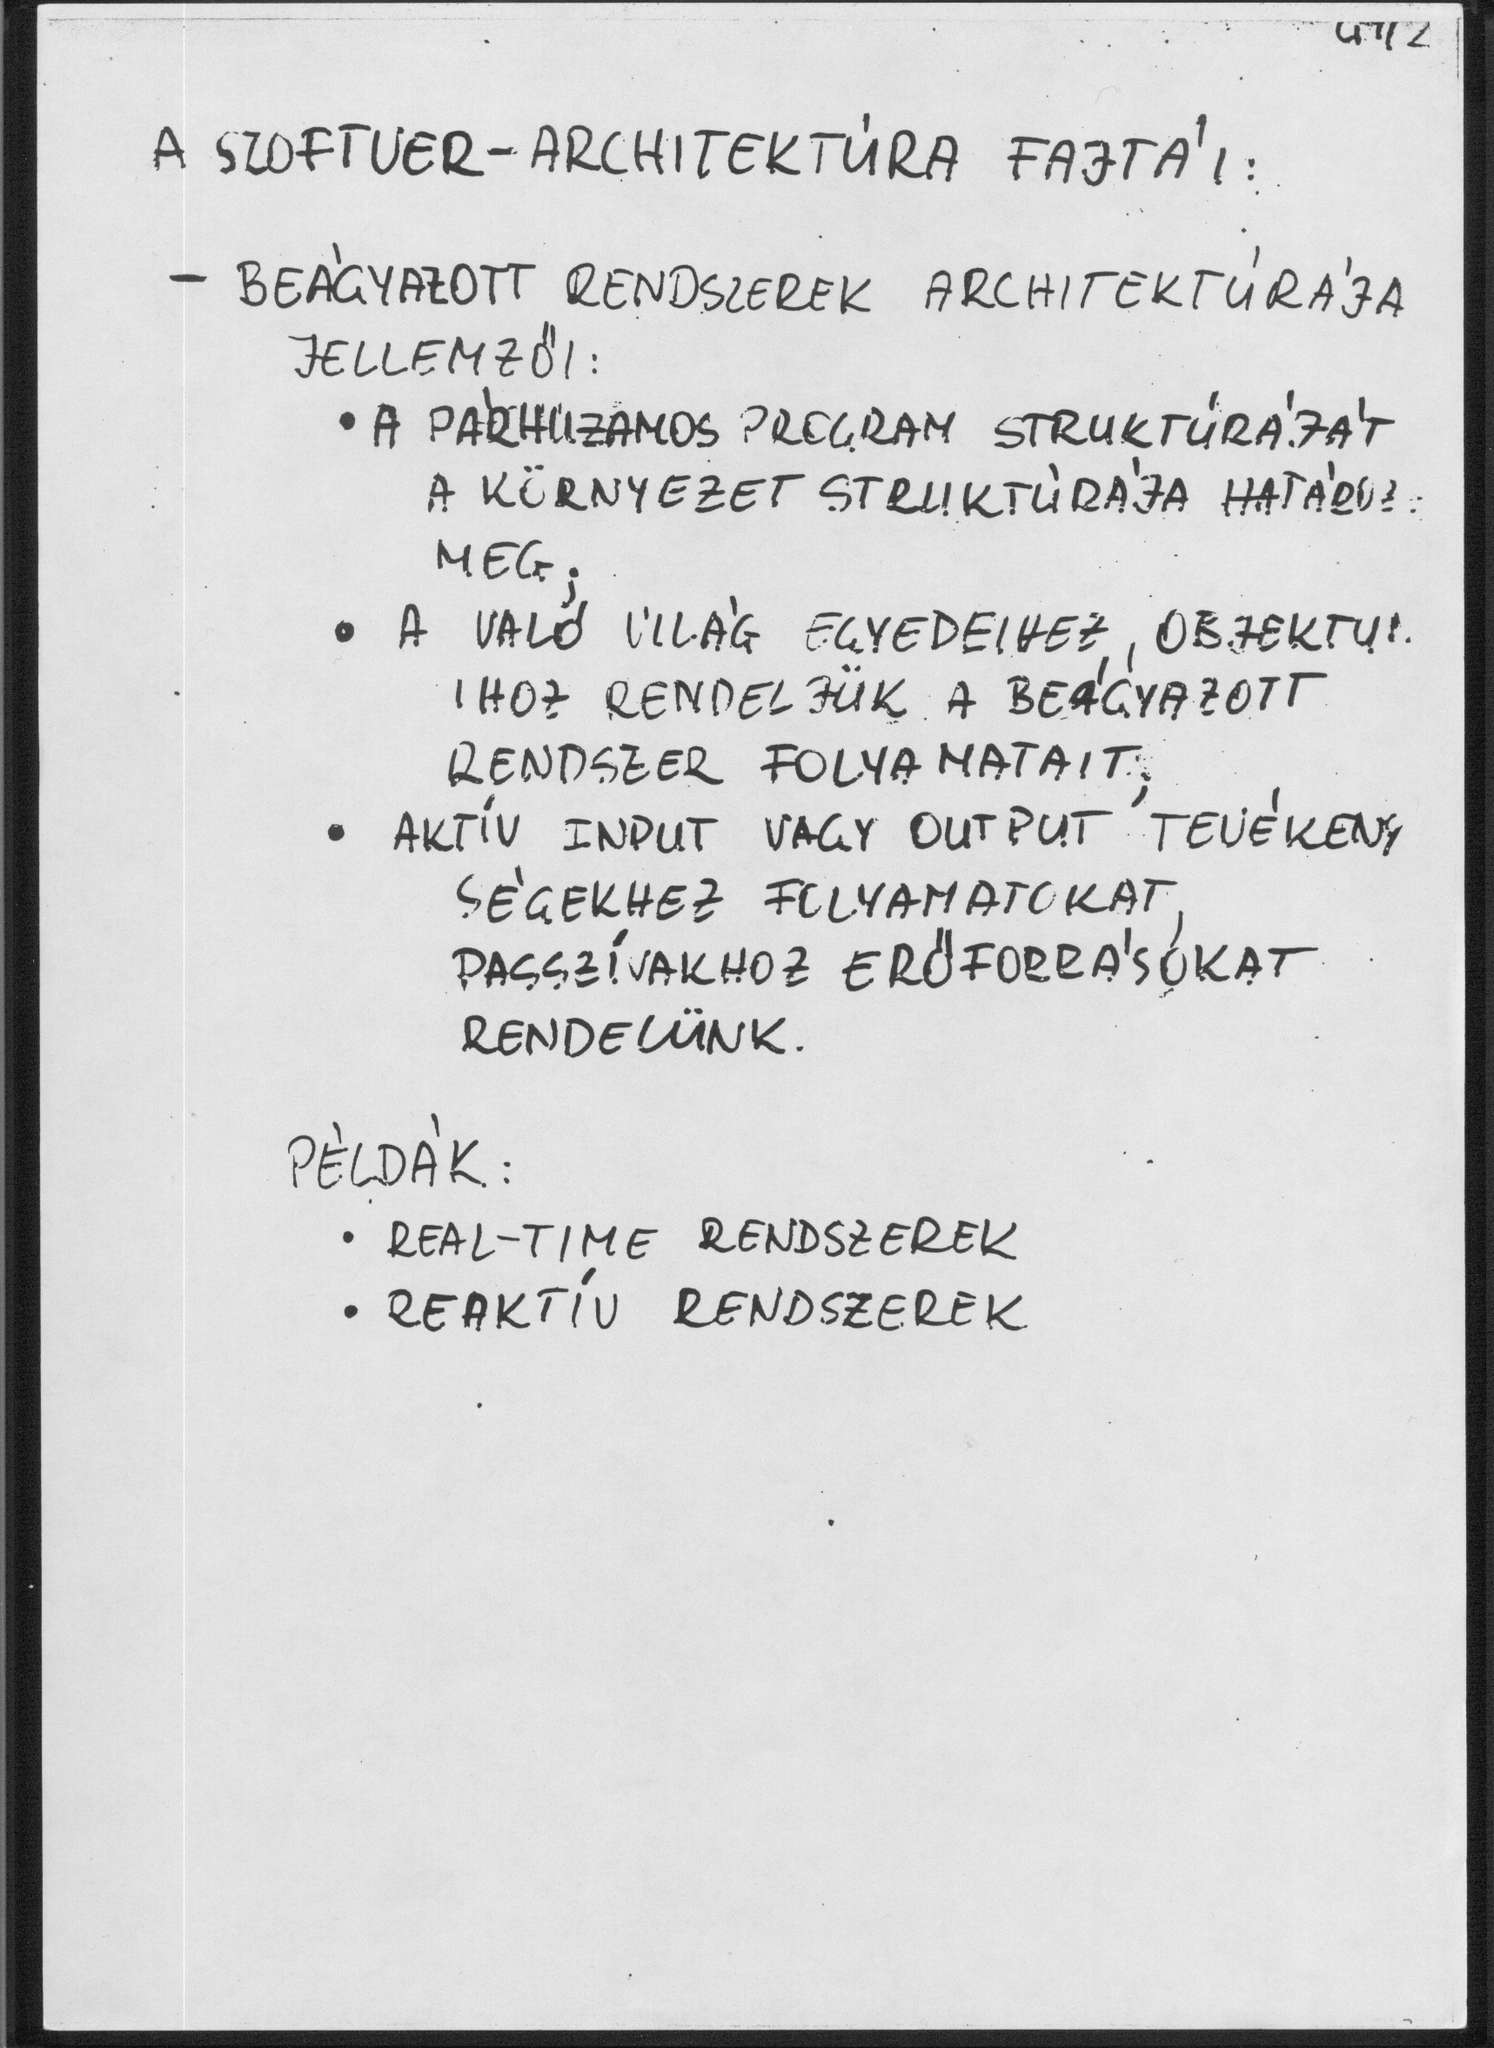 A SZOFTVER-ARCHITEKTÚRA FAJTÁI:
- BEÁGYAZOTT RENDSZEREK ARCHITEKTÚRÁJA
JELLEMZŐI:
• A PÁRHUZAMOS PROGRAM STRUKTÚRÁJÁT
A KÖRNYEZET STRUKTÚRÁJA
MEG;
• A VALÓ VILÁG EGYEDEIHEZ,
IHOZ RENDELJÜK A BEÁGYAZOTT
RENDSZER FOLYAMATAIT;
• AKTÍV INPUT VAGY OUTPUT TEVÉKENY
SÉGEKHEZ FOLYAMATOKAT,
PASSZÍVAKHOZ ERŐFORRÁSOKAT
RENDELÜNK.
PÉLDÁK:
• REAL-TIME RENDSZEREK
• REAKTÍV RENDSZEREK